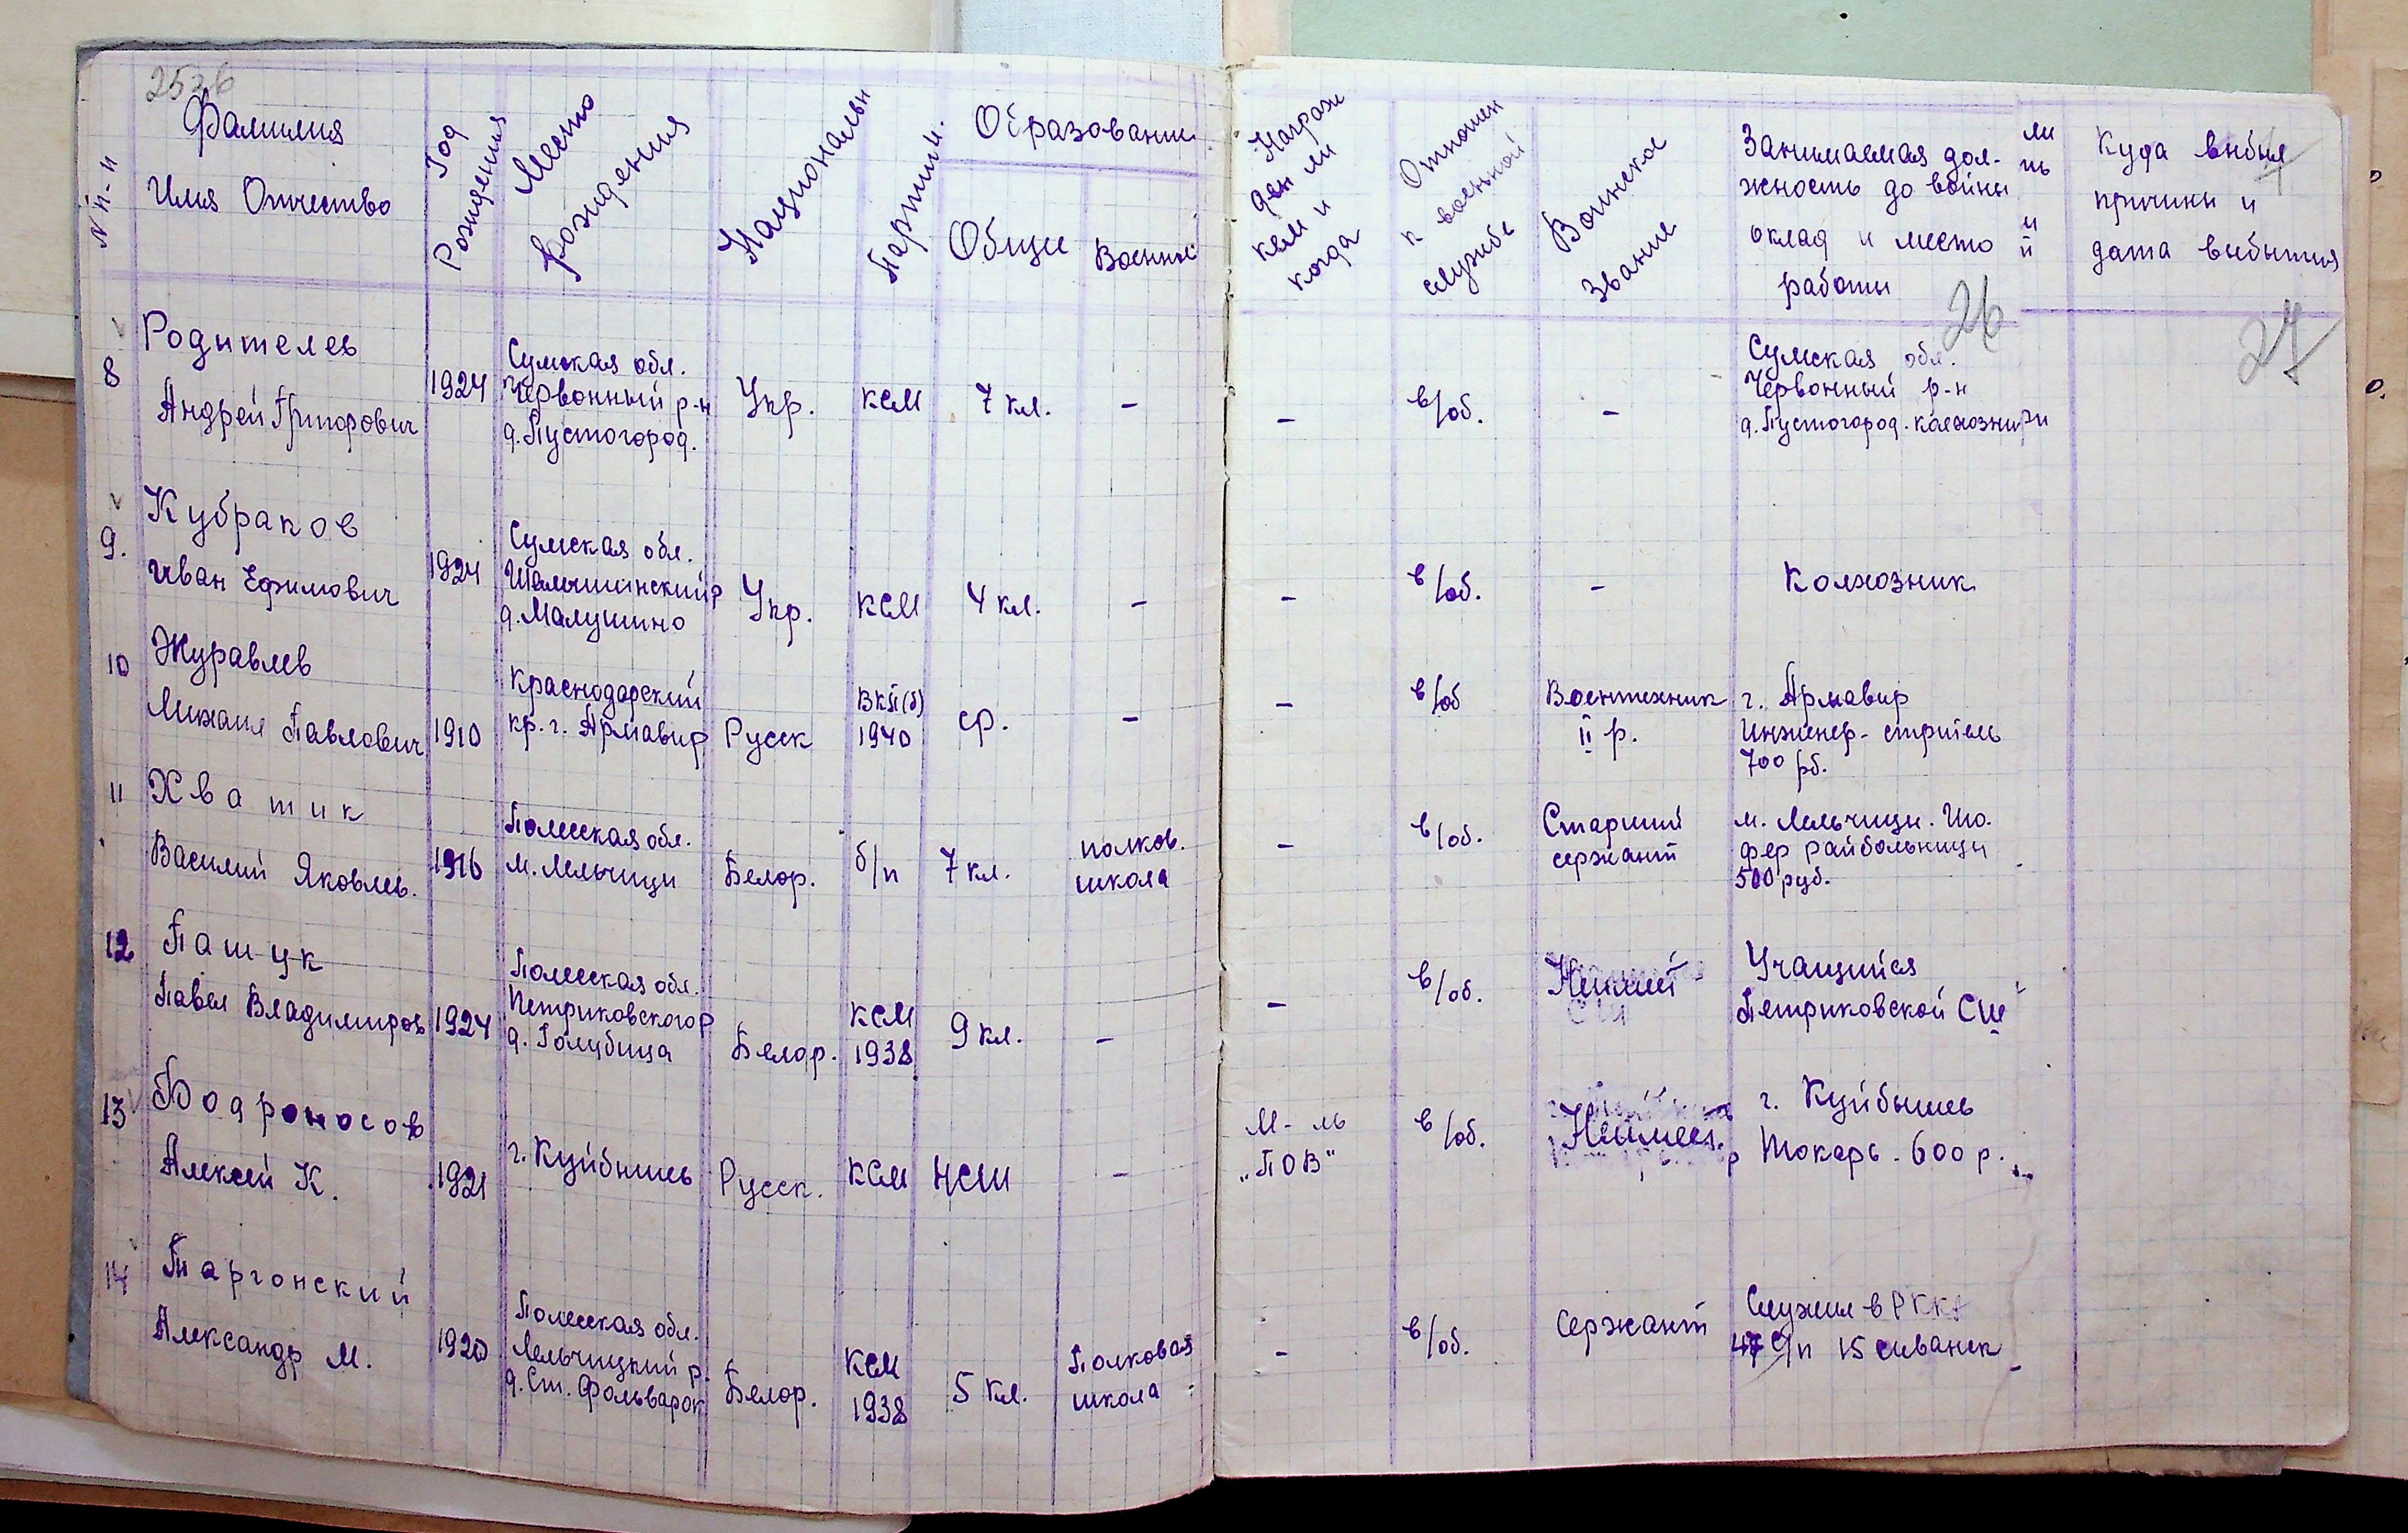 Фамилия
Имя Отчество
N п-п
Год
Рождения
Место
рождения
Националь
Партийн.
Образование
Общие
Военное
Награж
ден ли
кем и
когда
Отношен
к военной
службе
Воинское
Звание
Занимаемая дол-
жность до войны
оклад и место
работы
26
ли
нь
и
й
Куда выбыл
причины и
дата выбытия
27
8
Родителев
Андрей Григорович
1924
Сумская обл.
Червонный р-н
д. Пустогород.
Укр.
ксм
7 кл.
-
-
в/об.
-
Сумская обл.
Червонный р-н
д. Пустогород. колхозник
9.
Кубраков
Иван Ефимович
1924
Сумская обл.
д. Малушино
Укр.
ксм
4 кл.
-
-
в/об.
-
Колхозник
10
Журавлев
Михаил Павлович
1910
Краснодарский
кр. г. Армавир
Русск
ВКП(б)
1940
ср.
-
-
в/об
Воентехник
II р.
г. Армавир
Инженер-стритель
700 рб.
11
Хватик
Василий Яковлев.
1916
Полесская обл.
м. Лельчици
Белор.
б/п
7 кл.
полков.
школа
-
в/об.
Старший
сержант
м. Лельчици. Шо.
фер райбольници
500 руб.
12
Пашук
Павел Владимиров
1924
Полесская обл.
Петриковского р
д. Голубица
Белор.
ксм
1938
9 кл.
-
-
в/об.
Неимеет
Учащийся
Петриковской СШ
13
Бодроносов
Алексей К.
1921
г. Куйбышев
Русск.
ксм
НСШ
-
М-ль
„ПОВ"
в/об.
Неимеет.
г. Куйбышев
Токарь. 600 р.
14
Таргонский
Александр М.
1920
Полесская обл.
Лельчицкий р.
д. Ст. Фольварок
Белор.
ксм
1938
5 кл.
Полковая
школа
-
в/об.
Сержант
Служил в РККА